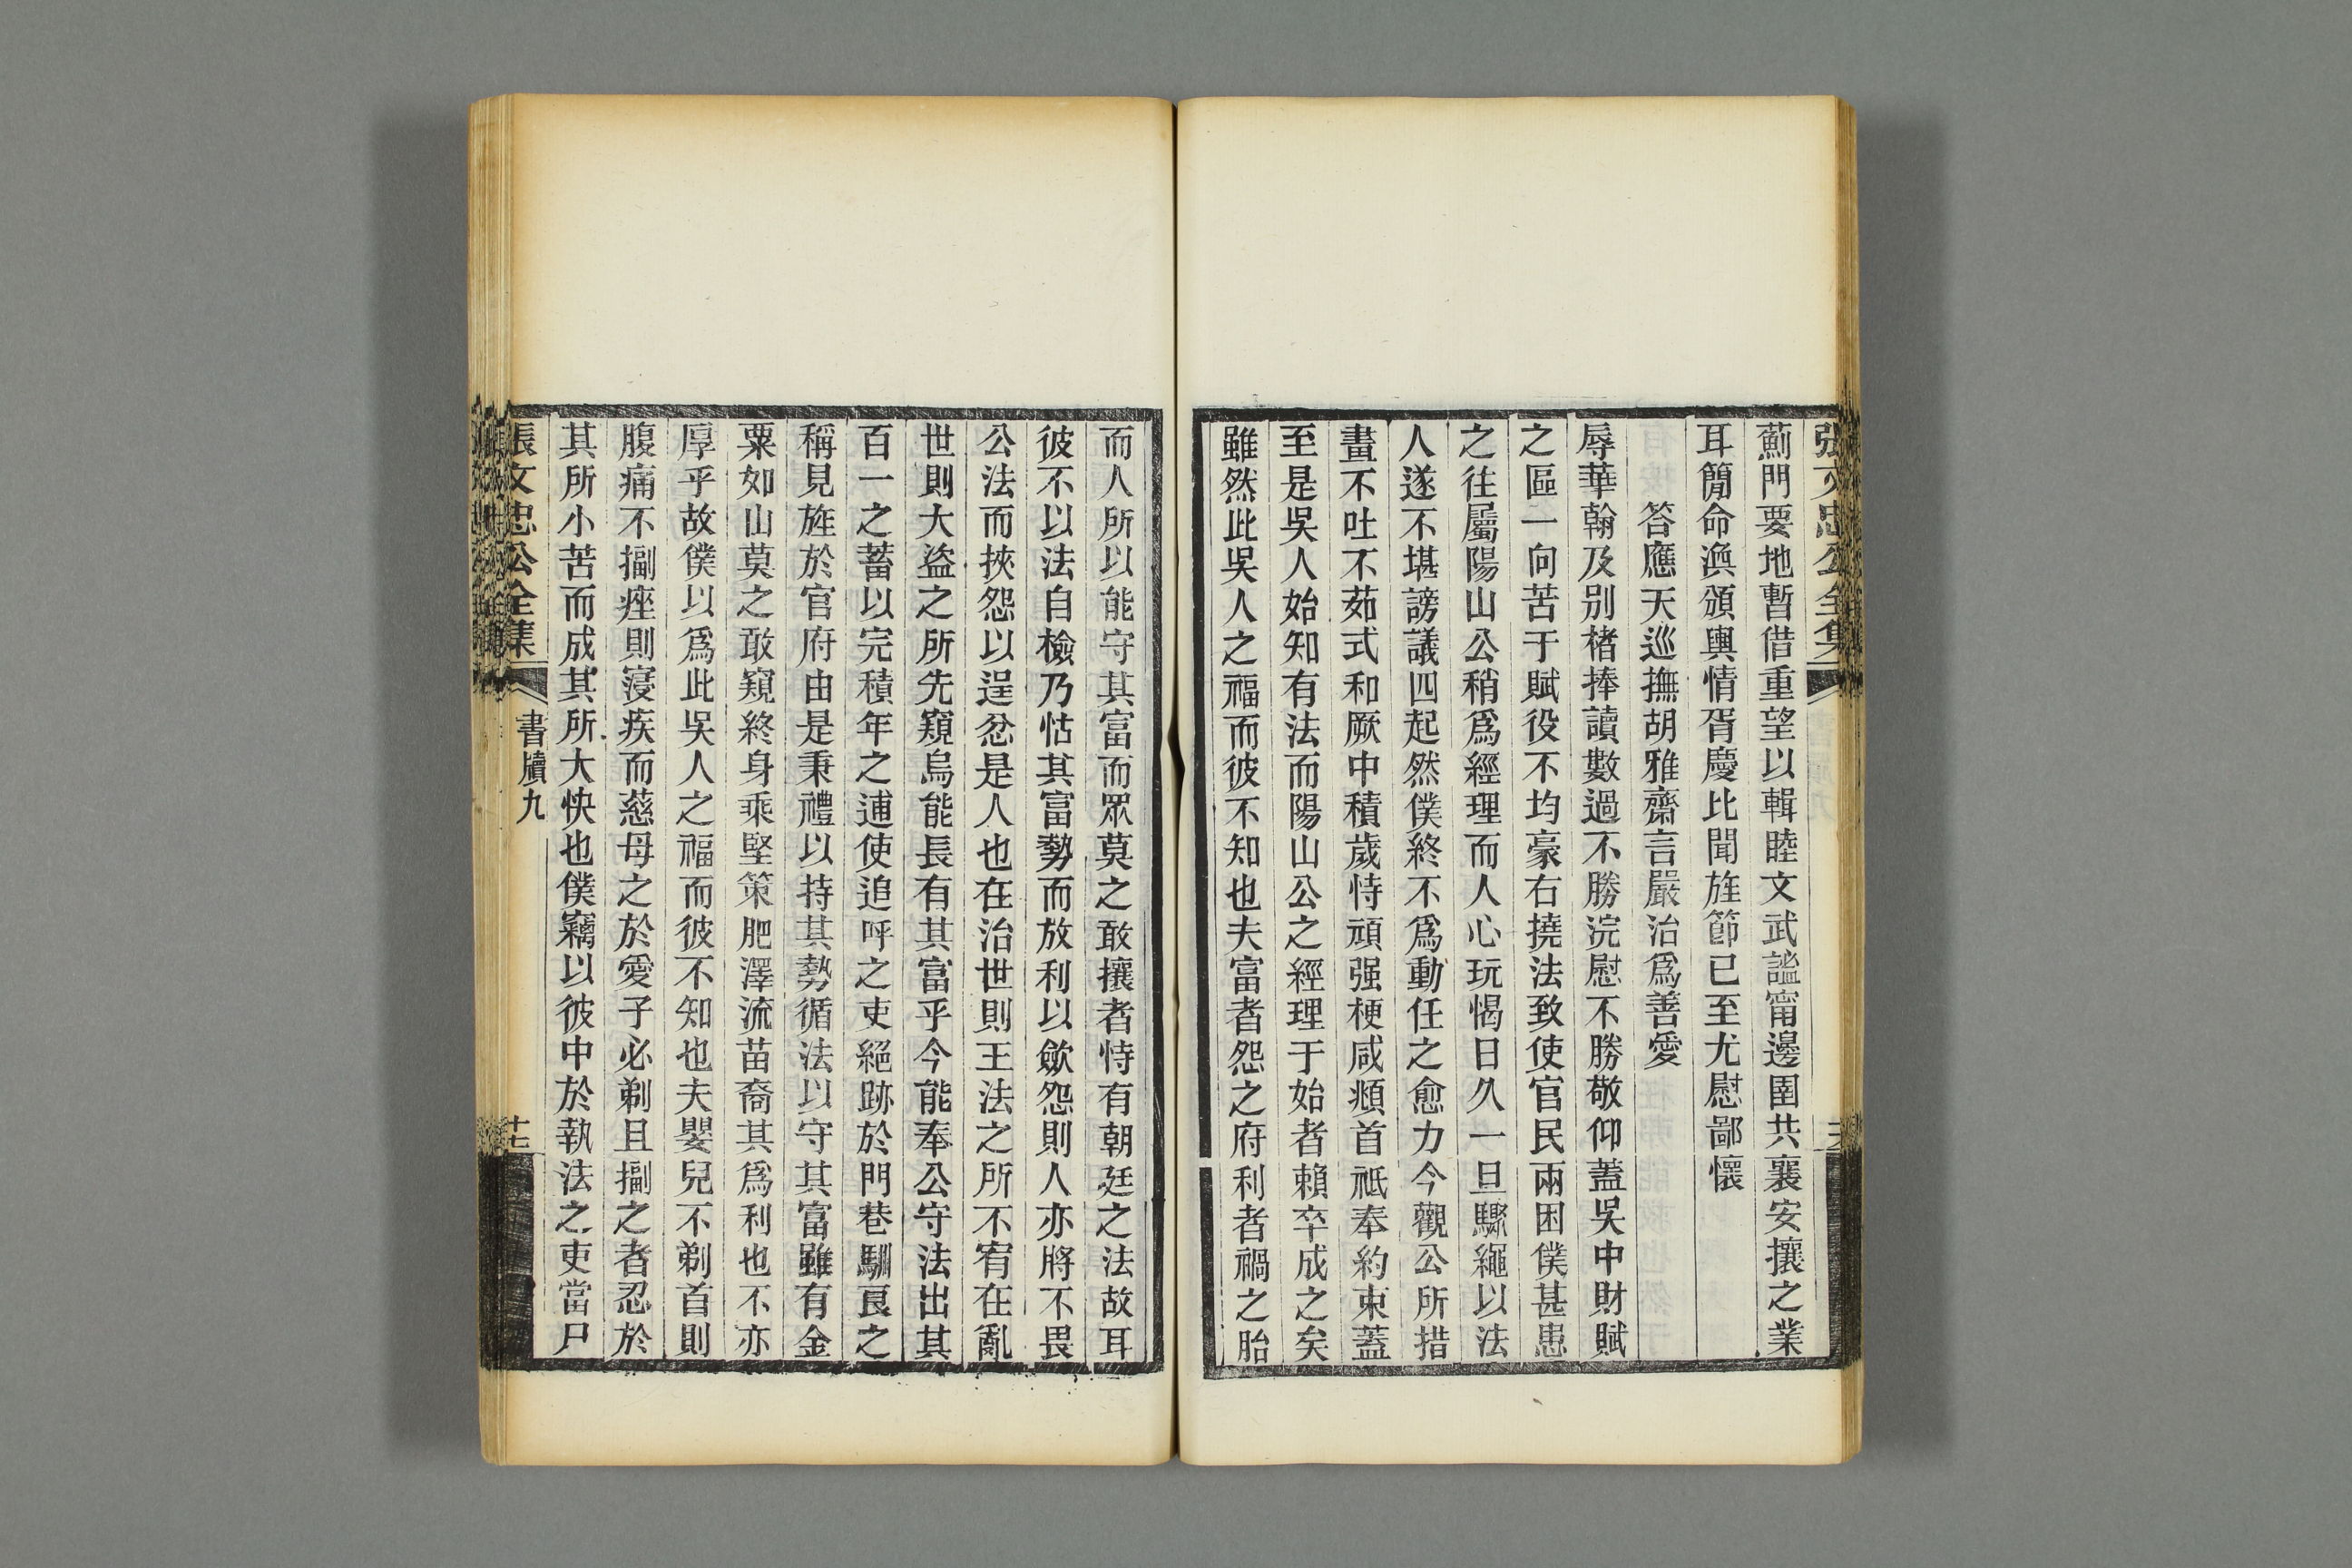 張文忠公全集
薊門要地暫借重望以輯睦文武謐甯邊圉共襄安攘之業
耳簡命渙頒輿情胥慶比聞旌節已至尤慰鄙懷
答應天巡撫胡雅齋言嚴治爲善愛
辱華翰及别楮捧讀數過不勝浣慰不勝敬仰蓋吳中財賦
之區一向苦于賦役不均豪右撓法致使官民兩困僕甚患
之往屬陽山公稍爲經理而人心玩愒日久一旦驟繩以法
人遂不堪謗議四起然僕終不爲動任之愈力今觀公所措
畫不吐不茹式和厥中積歲恃頑强梗咸頫首祗奉約束蓋
至是吳人始知有法而陽山公之經理于始者賴卒成之矣
雖然此吳人之福而彼不知也夫富者怨之府利者禍之胎
而人所以能守其富而眾莫之敢攘者恃有朝廷之法故耳
彼不以法自檢乃怙其富勢而放利以歛怨則人亦將不畏
公法而挾怨以逞忿是人也在治世則王法之所不宥在亂
世則大盜之所先窺烏能長有其富乎今能奉公守法出其
百一之蓄以完積年之逋使追呼之吏絕跡於門巷馴良之
稱見旌於官府由是秉禮以持其勢循法以守其富雖有金
粟如山莫之敢窺終身乘堅策肥澤流苗裔其爲利也不亦
厚乎故僕以爲此吳人之福而彼不知也夫嬰兒不剃首則
腹痛不揊痤則寖疾而慈母之於愛子必剃且揊之者忍於
其所小苦而成其所大快也僕竊以彼中於執法之吏當尸
張文忠公全集
書牘九
十七